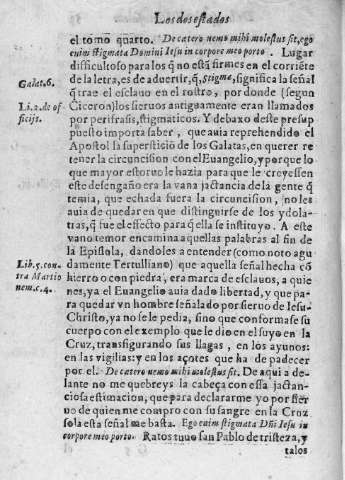 Los dos estados
el tomo quarto. De cætero nemo mihi molestus sit, ego
enim stigmata Domini Iesu in corpore meo porto. Lugar
dificultoso para los q̃ no está firmes en el corriẽte
de la letra, es de advertir, q̃, stigma, significa la señal
Galat. 6.
q̃ trae el esclauo en el rostro, por donde (segun
Li. 2. de of
ficijs.
Ciceron) los sieruos antiguamente eran llamados
por perifrasis, stigmaticos. Y debaxo deste presup
puesto importa saber, que auia reprehendido el
Apostol la superstició de los Galatas, en querer re
tener la circuncision con el Euangelio, y porque lo
que mayor estoruo le hazia para que le creyessen
este desengaño era la vana jactancia de la gente q̃
temia, que echada fuera la circuncision, no les
auia de quedar en que distinguirse de los ydola-
tras, q̃ fue el effecto para q̃ ella se instituyo. A este
vano temor encamina aquellas palabras al fin de
la Epistola, dandoles a entender (como noto agu
Lib. 5. con-
tra Martio
nem. c. 4.
damente Tertulliano) que aquella señal hecha cõ
hierro o con piedra, era marca de esclauos, a quie
nes, ya el Euangelio auia dado libertad, y que pa-
ra quedar vn hombre señalado por sieruo de Iesu-
Christo, ya no se le pedia, sino que conformase su
cuerpo con el exemplo que le dio en el suyo en la
Cruz, transfigurando sus llagas, en los ayunos:
en las vigilias: y en los açotes que ha de padecer
por el. De cætero nemo mihi molestus sit. De aqui a de-
lante no me quebreys la cabeça con essa jactan-
ciosa estimacion, que para declararme yo por sier
uo de quien me compro con su sangre en la Cruz
sola esta señal me basta. Ego enim stigmata Dñi Iesu in
corpore meo porto. Ratos tuuo san Pablo de tristeza, y
talos